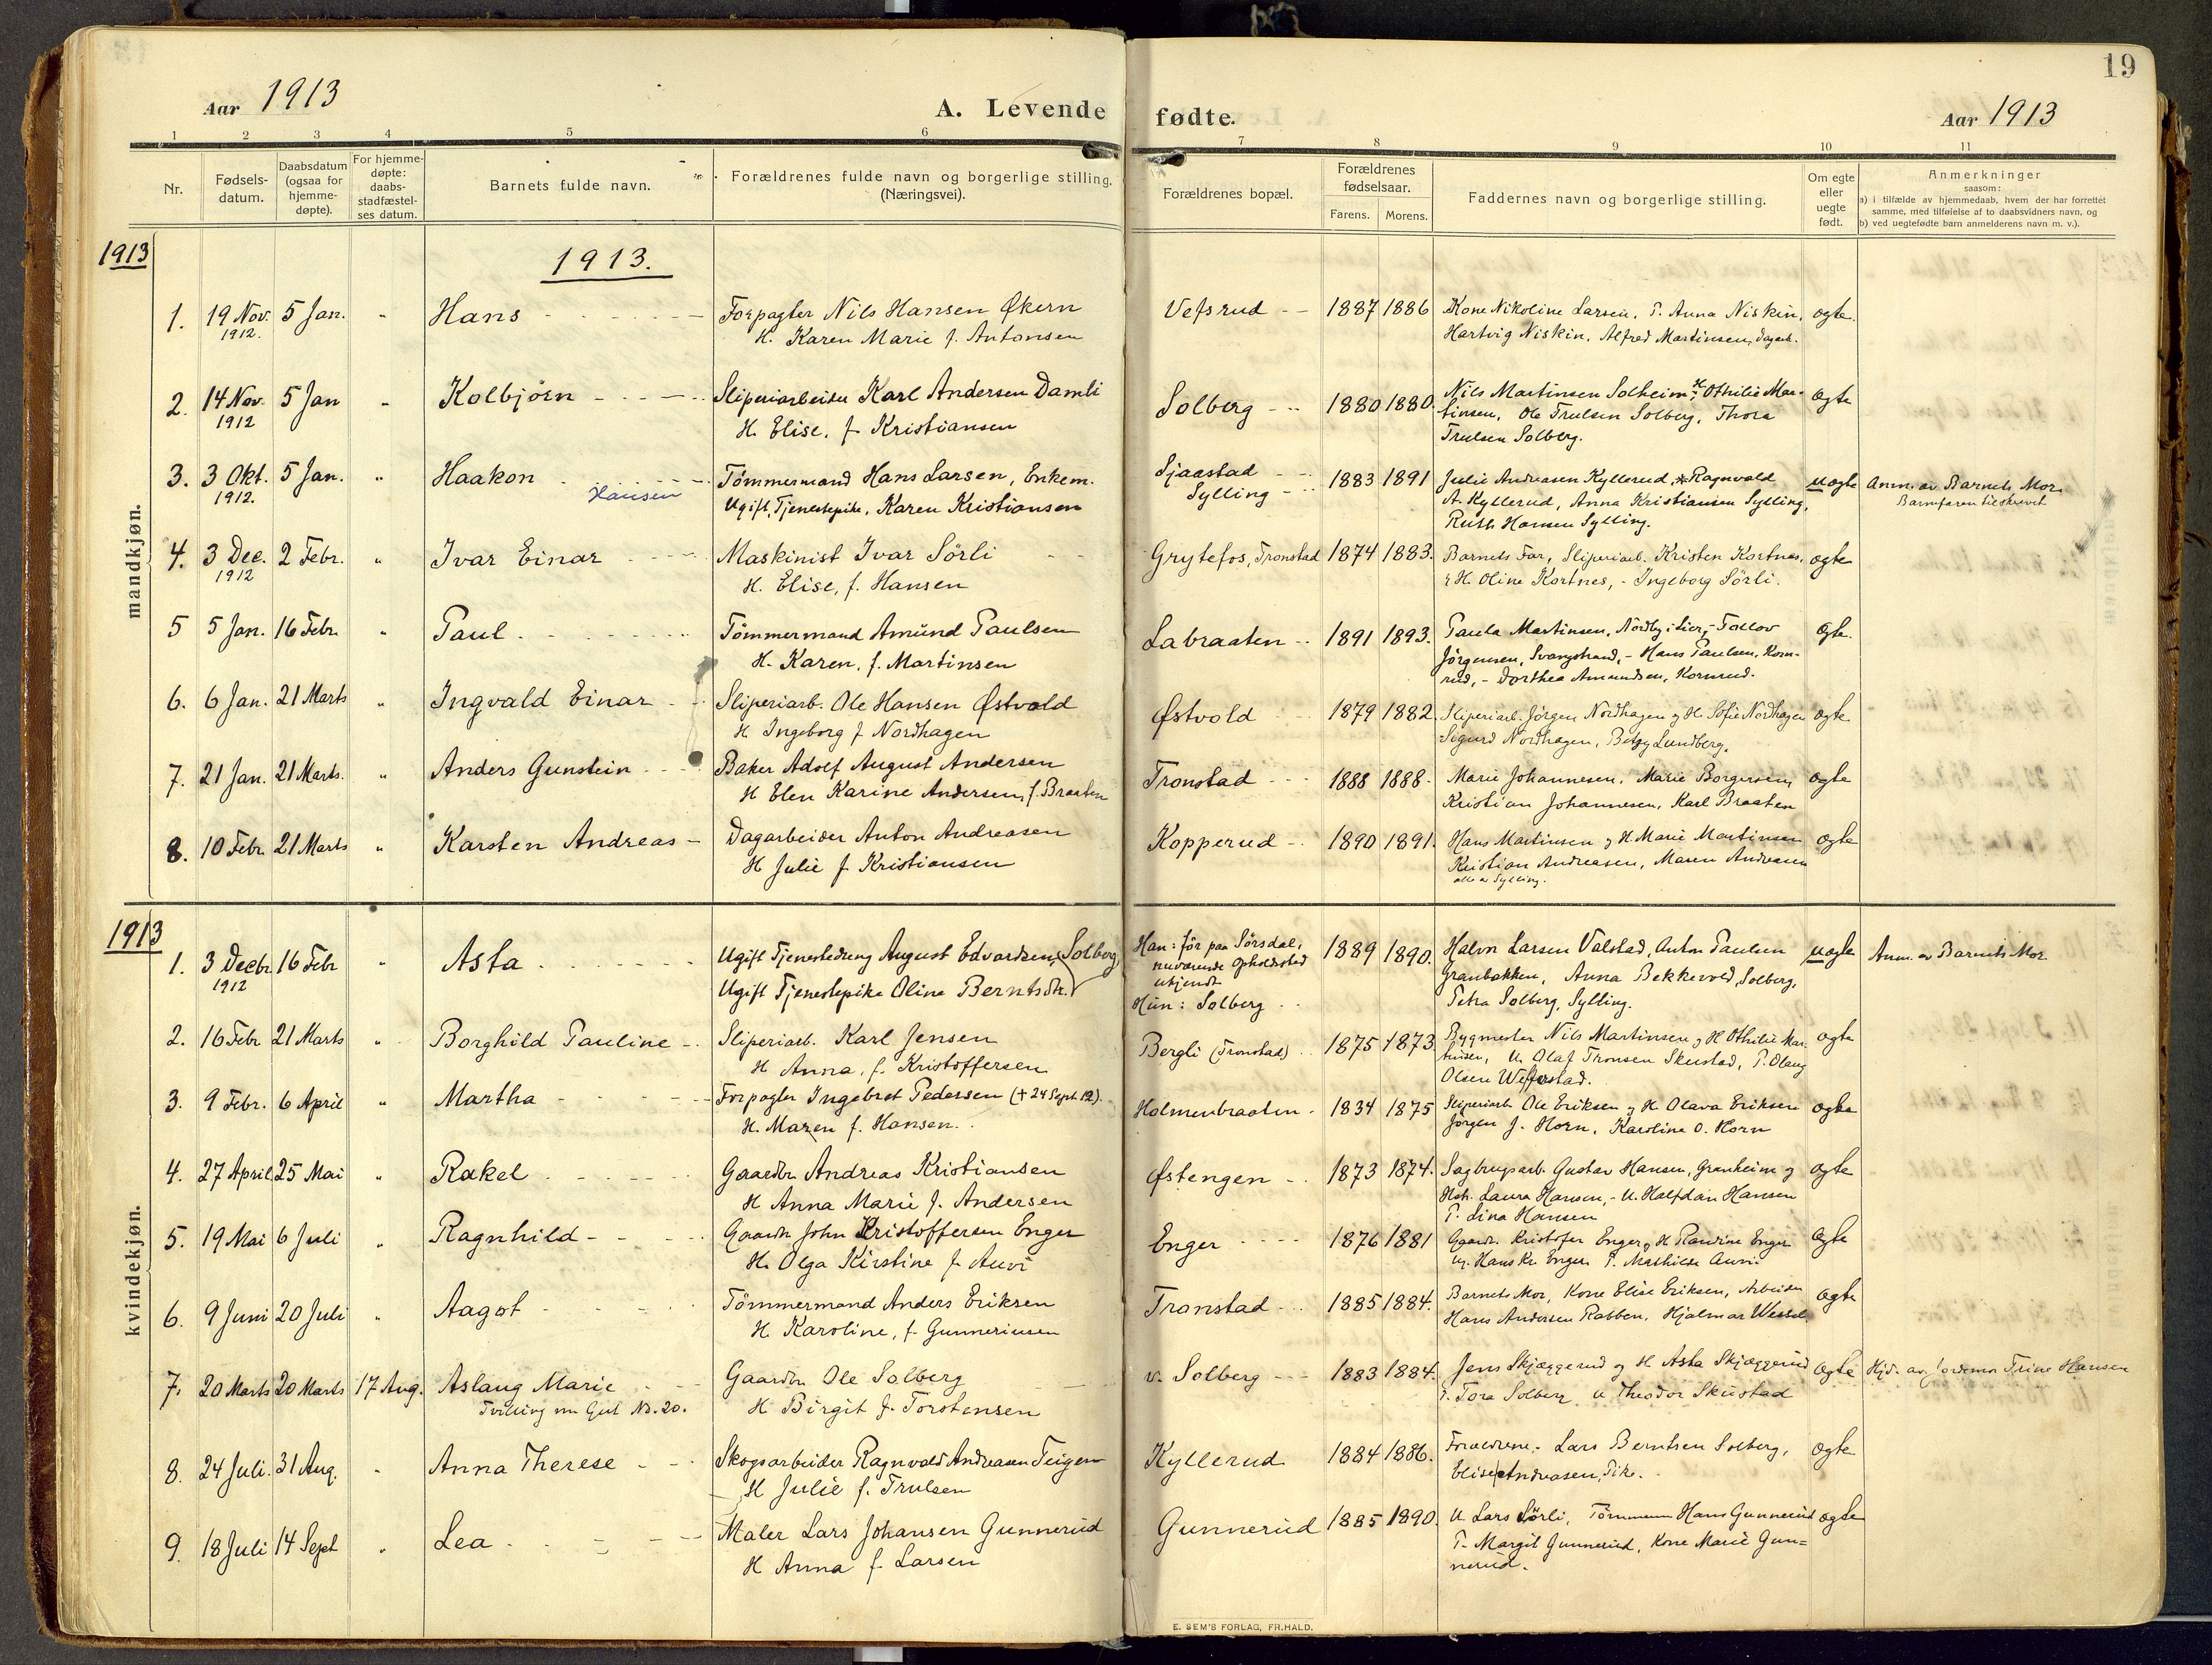 19
Aar 1913
A. Levende fødte.
Aar 1913
1 2 3 4 5 6 7 8 9 10 11
Nr.
Fødsels-
datum.
Daabsdatum
(ogsaa for
hjemme-
døpte).
For hjemme-
døpte:
daabs-
stadfæstel-
ses datum.
Barnets fulde navn.
Forældrenes fulde navn og borgerlige stilling.
(Næringsvei).
Forældrenes bopæl.
Forældrenes
fødselsaar.
Farens. Morens.
Faddernes navn og borgerlige stilling.
Om egte
eller
uegte
født.
Anmerkninger
saasom:
a) i tilfælde av hjemmedaab, hvem der har forrettet
samme, med tilføielse af to daabsvidners navn, og
b) ved uegtefødte barn anmelderens navn m. v.).
1913
1913.
mandkjøn.
1. 19 Nov. 5 Jan. " Hans Forpagter Nils Hansen Økern Vefsrud 1887 1886 Kone Nikoline Larsen, P. Anna Niskin, egte.
1912. H. Karen Marie f. Antonsen Hartvig Niskin, Alfred Martinsen, Dagarb.
2. 14 Nov. 5 Jan " Kolbjörn Sliperiarbeider Karl Andersen Damli Solberg 1880 1880. Nils Martinsen Solheim, H. Othilie Mar- egte
1912 H. Elise, f. Kristiansen tinsen, Ole Trulsen Solberg, Thora
Trulsen Solberg.
3. 3 Okt. 5 Jan. " Haakon Hansen Tömmermand Hans Larsen, Enkem. Sjaastad 1883 1891 Julie Andreasen Kyllerud, Ragnvald uegte Anm. av Barnets Mor.
1912. Ugift, Tjenestepike, Karen Kristiansen Sylling A. Kyllerud, Anna Kristiansen Sylling, Barnefaren tilskrevet
Ruth Hansen Sylling.
4. 3 Dec. 2 Febr. " Ivar Einar Maskinist Ivar Sörli Grytefos, Tronstad 1874 1883. Barnets Far, Sliperiarb. Kristen Kortnes, egte
1912 H. Elise, f. Hansen H. Oline Kortnes, - Ingeborg Sörli.
5 5 Jan. 16 Febr. " Paul Tömmermand Amund Paulsen Labraaten 1891 1893. Paula Martinsen, Nordby i Lier, - Tollov egte.
H. Karen, f. Martinsen Jörgensen, Svangstrand, - Hans Paulsen, Korn-
rud, - Dorthea Amundsen, Kornrud.
6. 6 Jan. 21 Marts " Ingvald Einar Sliperiarb. Ole Hansen Østvold Østvold 1879 1882. Sliperiarb. Jörgen Nordhagen og H. Sofie Nordhagen egte
H Ingeborg f Nordhagen Sigurd Nordhagen, Betzy Lundberg.
7. 21 Jan. 21 Marts. " Anders Gunstein Baker Adolf August Andersen Tronstad 1888 1888. Marie Johannesen, Marie Borgersen, egte
H Elen Karine Andersen, f. Braaten Kristian Johannesen, Karl Braaten
8. 10 Febr. 21 Marts " Karsten Andreas Dagarbeider Anton Andreasen Kopperud 1890 1891. Hans Martinsen og H. Marie Martinsen egte
H Julie f Kristiansen Kristian Andreasen, Maren Andreasen
alle av Sylling.
1913
kvindekjøn.
1. 3 Decbr 16 Febr " Asta Ugift Tjenestedreng August Edvardsen Solberg, Han: för paa Sörsdal, 1889 1890. Halvor Larsen Valstad, Anton Paulsen uegte Anm. av Barnets Mor.
1912 Ugift Tjenestepike Oline Berntsdtr. nuværende Opholdssted Granbakken, Anna Bekkevold, Solberg,
ukjendt Petra Solberg, Sylling.
Hun: Solberg
2. 16 Febr 21 Marts " Borghild Pauline Sliperiarb. Karl Jensen Bergli (Tronstad) 1875 1873. Bygmester Nils Martinsen og H Othilie Mar- egte
H Anna, f. Kristoffersen tinsen, U. Olaf Tronsen Skustad, P. Olaug
Olsen
3. 9 Febr. 6 April " Martha Forpagter Ingebret Pedersen († 24 Sept. 12). Holmenbraaten 1834 1875 Sliperiarb. Ole Eriksen og H. Olava Eriksen egte
H. Maren f. Hansen. Jörgen J. Horn, Karoline O. Horn
4. 27 April 25 Mai " Rakel Gaardbr Andreas Kristiansen Østengen 1873 1874. Sagbrugsarb. Gustav Hansen, Granheim og egte
H Anna Marie f. Andersen Hst. Laura Hansen, - U. Halfdan Hansen
P. Lina Hansen
5. 19 Mai 6 Juli " Ragnhild Gaardbr John Kristoffersen Enger Enger 1876 1881 Gaardbr. Kristofer Enger og H Randine Enger egte
H. Olga Kirstine f. Auvi Hans Kr. Enger P. Mathilde Auvi.
6. 9 Juni 20 Juli " Aagot Tömmermand Anders Eriksen Tronstad 1885 1884. Barnets Mor, Kone Elise Eriksen, Arbeider egte
H. Karoline, f. Gunneriusen Hans Andersen Rabben, Hjalmar Wessel.
7. 20 Marts 20 Marts 17 Aug. Aslaug Marie Gaardbr Ole Solberg v. Solberg 1883 1884. Jens Skjæggerud og H Asta Skjæggerud egte Hjd. av Jordemor Trine Hansen
Tvilling m Gut No. 20. H Birgit f. Torstensen P. Tora Solberg, U Theodor Skustad
8. 24 Juli. 31 Aug. " Anna Therese Skogsarbeider Ragnvald Andreasen Teigen Kyllerud 1884 1886. Forældrene, - Lars Berntsen Solberg, egte
H Julie f. Trulsen Elise Andreasen, Pike.
9. 18 Juli 14 Sept " Lea Maler Lars Johansen Gunnerud Gunnerud 1885 1890. U Lars Sörli, Tömmerm Hans Gunnerud egte
H Anna f Larsen P. Margit Gunnerud, Kone Marie Gun=
nerud.
E. SEM'S FORLAG, FR.HALD.